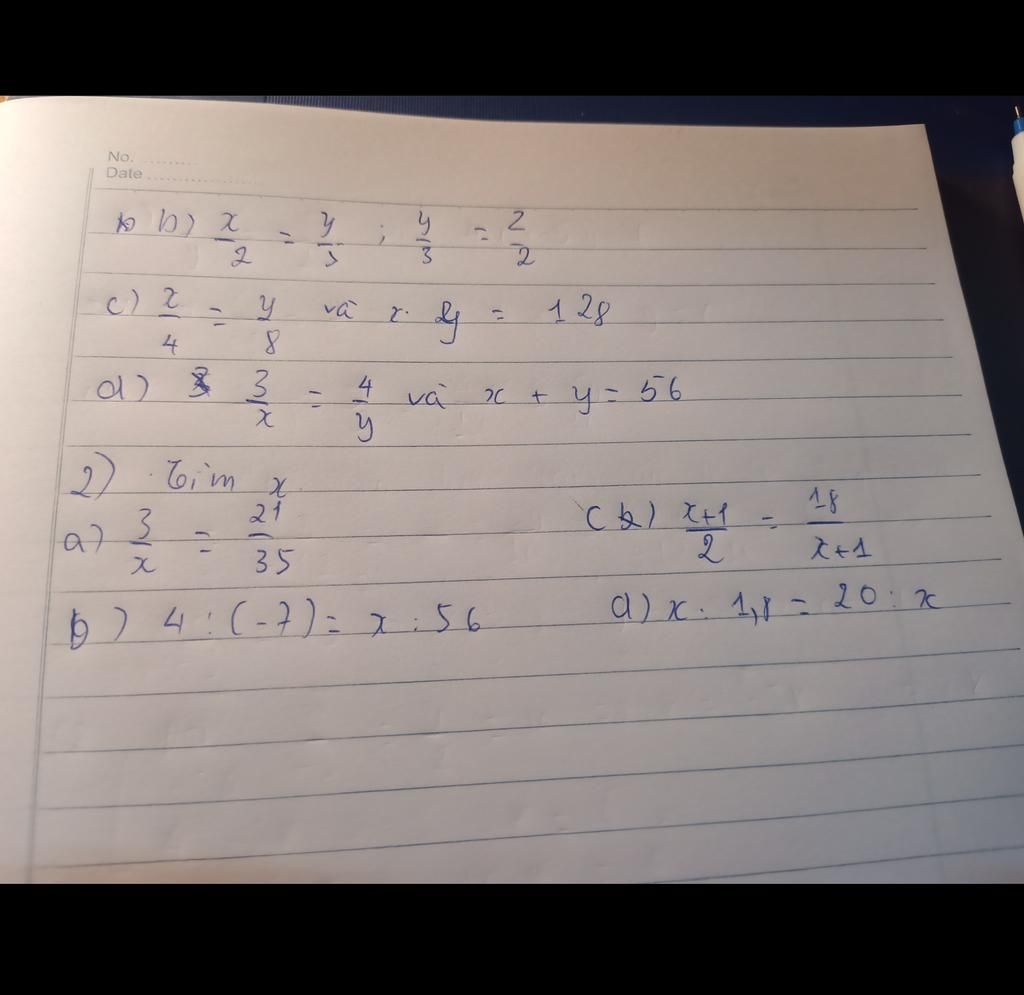 No. ..........
Date ....................
b) x/2 = y/3 ; y/3 = z/2
c) x/4 = y/8 và x. y = 128
d) 3/x = 4/y và x + y = 56
2) Tìm x
a) 3/x = 21/35
c) (x+1)/2 = 18/(x+1)
b) 4 : (-7) = x : 56
d) x . 1,8 = 20 : x